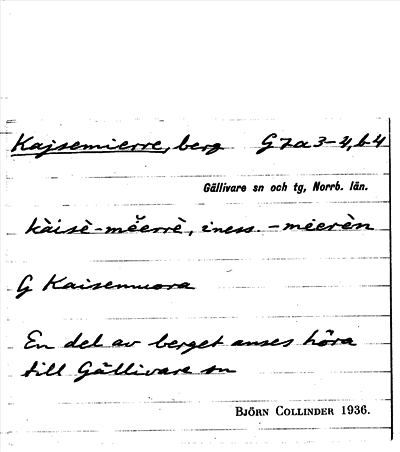 Kajsemierre, berg G7a3-4, b4
Gällivare sn och tg, Norrb. län.
kàisè-mĕerrè, iness. -meerèn
G Kaisenvuora
En del av berget anses höra
till Gällivare sn
BJÖRN COLLINDER 1936.